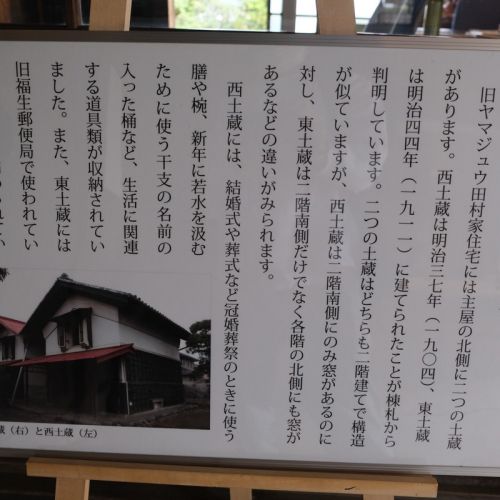 旧ヤマジュウ田村家住宅には主屋の北側に二つの土蔵
があります。西土蔵は明治三七年（一九〇四）、東土蔵
は明治四四年（一九一一）に建てられたことが棟札から
判明しています。二つの土蔵はどちらも二階建てで構造
が似ていますが、西土蔵は二階南側にのみ窓があるのに
対し、東土蔵は二階南側だけでなく各階の北側にも窓が
あるなどの違いがみられます。
西土蔵には、結婚式や葬式など冠婚葬祭のときに使う
膳や椀、新年に若水を汲む
ために使う干支の名前の
入った桶など、生活に関連
する道具類が収納されてい
ました。また、東土蔵には
旧福生郵便局で使われてい
蔵（右）と西土蔵（左）